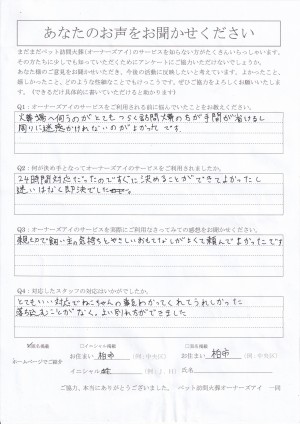 あなたのお声をお聞かせください
まだまだペット訪問火葬(オーナーズアイ)のサービスを知らない方がたくさんいらっしゃいます。
その方たちに少しでも知っていただくためにアンケートにご協力いただけないでしょうか。
あなた様のご意見をお聞かせいただき、今後の活動に反映したいと考えています。よかったこと、
嬉しかったこと、どのような些細なことでもけっこうです。ご協力をよろしくお願いいたします。
(できるだけ具体的に書いていただけると助かります)
Q1:オーナーズアイのサービスをご利用される前に悩んでいたことをお教えください。
火葬場へ伺うのがとてもつらく訪問火葬の方が手間が省けるし
周りに迷惑がかけれないのがよかったです
Q2:何が決め手となってオーナーズアイのサービスをご利用されましたか。
24時間対応だったのですぐに決めることができてよかったし
迷いはなく即決でした
Q3:オーナーズアイのサービスを実際にご利用なさってみての感想をお聞かせください。
親切で飼い主の気持ちとやさしいおもてなしがよくて頼んでよかったです
Q4:対応したスタッフの対応はいかがでしたか。
とてもいい対応でねこちゃんの事をわかってくれてうれしかった
落ち込むことがなく。よい別れ方ができました
イニシャル掲載
ホームページでご紹介
お住まい 柏市 (例:中央区)
お住まい 柏市 (例:中央区)
イニシャル (例:J.H)
氏名
ご協力、本当にありがとうございました。 ペット訪問火葬オーナーズアイ 一同